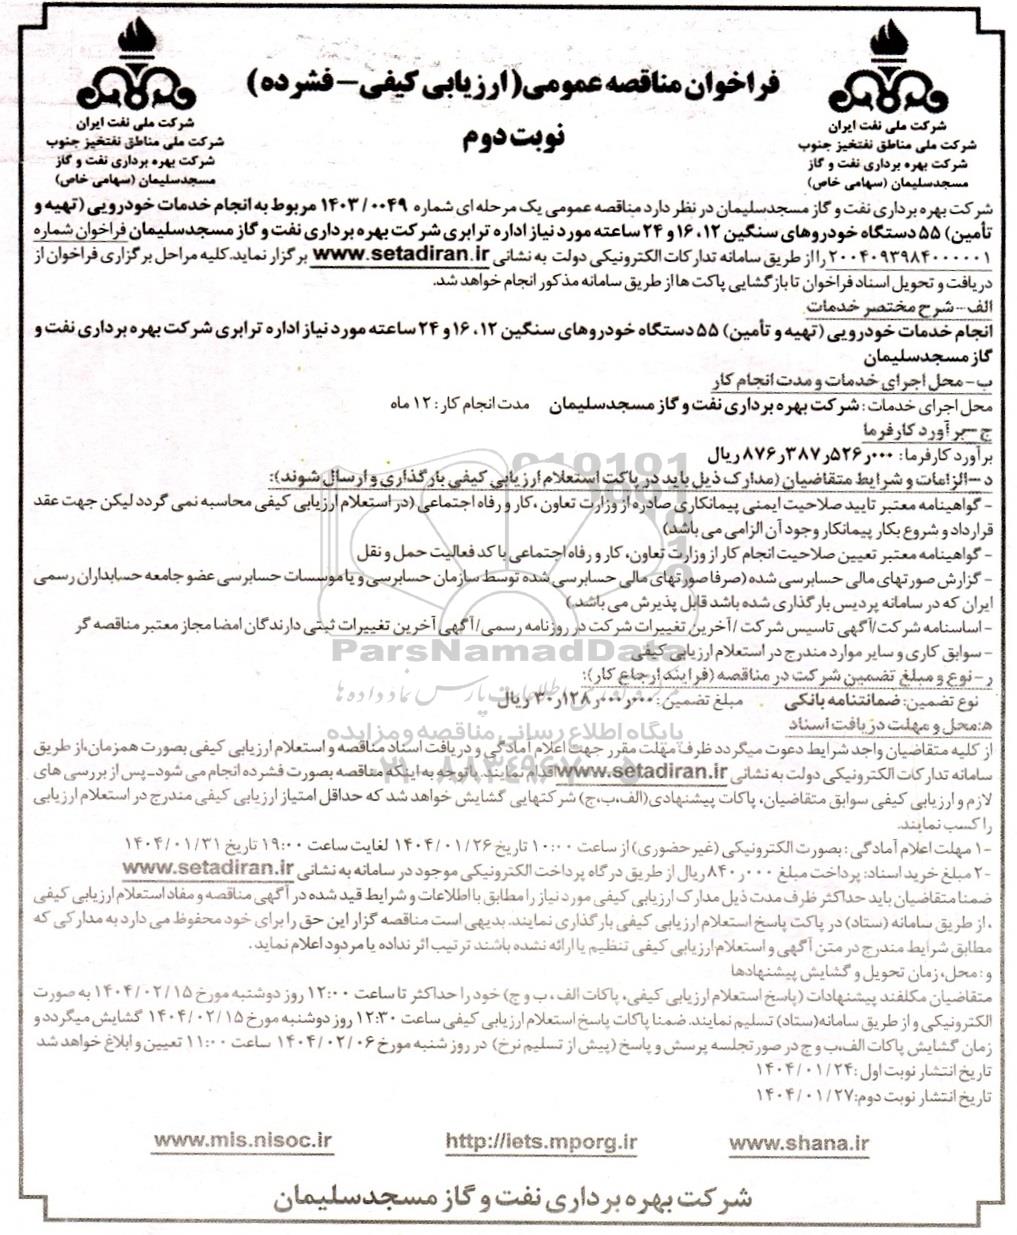 فراخوان مناقصه عمومی (ارزیابی کیفی - فشرده)
نوبت دوم
شرکت ملی نفت ایران
شرکت ملی مناطق نفتخیز جنوب
شرکت بهره برداری نفت و گاز
مسجدسلیمان (سهامی خاص)
شرکت ملی نفت ایران
شرکت ملی مناطق نفتخیز جنوب
شرکت بهره برداری نفت و گاز
مسجدسلیمان (سهامی خاص)
شرکت بهره برداری نفت و گاز مسجدسلیمان در نظر دارد مناقصه عمومی یک مرحله ای شماره ۱۴۰۳/۰۰۴۹ مربوط به انجام خدمات خودرویی (تهیه و
تأمین) ۵۵ دستگاه خودروهای سنگین ۱۲، ۱۶ و ۲۴ ساعته مورد نیاز اداره ترابری شرکت بهره برداری نفت و گاز مسجدسلیمان فراخوان شماره
۲۰۰۴۰۹۳۹۸۴۰۰۰۰۰۱ را از طریق سامانه تدارکات الکترونیکی دولت به نشانی www.setadiran.ir برگزار نماید. کلیه مراحل برگزاری فراخوان از
دریافت و تحویل اسناد فراخوان تا بازگشایی پاکت ها از طریق سامانه مذکور انجام خواهد شد.
الف- شرح مختصر خدمات
انجام خدمات خودرویی (تهیه و تأمین) ۵۵ دستگاه خودروهای سنگین ۱۲، ۱۶ و ۲۴ ساعته مورد نیاز اداره ترابری شرکت بهره برداری نفت و
گاز مسجدسلیمان
ب- محل اجرای خدمات و مدت انجام کار
محل اجرای خدمات: شرکت بهره برداری نفت و گاز مسجدسلیمان مدت انجام کار: ۱۲ ماه
ج- برآورد کارفرما
برآورد کارفرما: ۸۷۶٫۳۸۷٫۵۲۶٫۰۰۰ ریال
د- الزامات و شرایط متقاضیان (مدارک ذیل باید در پاکت استعلام ارزیابی کیفی بارگذاری و ارسال شوند):
- گواهینامه معتبر تایید صلاحیت ایمنی پیمانکاری صادره از وزارت تعاون، کار و رفاه اجتماعی (در استعلام ارزیابی کیفی محاسبه نمی گردد لیکن جهت عقد
قرارداد و شروع بکار پیمانکار وجود آن الزامی می باشد)
- گواهینامه معتبر تعیین صلاحیت انجام کار از وزارت تعاون، کار و رفاه اجتماعی با کد فعالیت حمل و نقل
- گزارش صورتهای مالی حسابرسی شده (صرفا صورتهای مالی حسابرسی شده توسط سازمان حسابرسی و یا موسسات حسابرسی عضو جامعه حسابداران رسمی
ایران که در سامانه پردیس بارگذاری شده باشد قابل پذیرش می باشد.)
- اساسنامه شرکت/آگهی تاسیس شرکت/آخرین تغییرات شرکت در روزنامه رسمی/آگهی آخرین تغییرات ثبتی دارندگان امضا مجاز معتبر مناقصه گر
- سوابق کاری و سایر موارد مندرج در استعلام ارزیابی کیفی
ر- نوع و مبلغ تضمین شرکت در مناقصه (فرایند ارجاع کار):
نوع تضمین: ضمانتنامه بانکی مبلغ تضمین: ۳۰٫۱۲۸٫۰۰۰٫۰۰۰ ریال
ه: محل و مهلت دریافت اسناد
از کلیه متقاضیان واجد شرایط دعوت میگردد ظرف مهلت مقرر جهت اعلام آمادگی و دریافت اسناد مناقصه و استعلام ارزیابی کیفی بصورت همزمان، از طریق
سامانه تدارکات الکترونیکی دولت به نشانی www.setadiran.ir اقدام نمایند. باتوجه به اینکه مناقصه بصورت فشرده انجام می شود- پس از بررسی های
لازم و ارزیابی کیفی سوابق متقاضیان، پاکات پیشنهادی(الف،ب،ج) شرکتهایی گشایش خواهد شد که حداقل امتیاز ارزیابی کیفی مندرج در استعلام ارزیابی
را کسب نمایند.
۱- مهلت اعلام آمادگی: بصورت الکترونیکی (غیرحضوری) از ساعت ۱۰:۰۰ تاریخ ۱۴۰۴/۰۱/۲۶ لغایت ساعت ۱۹:۰۰ تاریخ ۱۴۰۴/۰۱/۳۱
۲- مبلغ خرید اسناد: پرداخت مبلغ ۸۴۰٫۰۰۰ ریال از طریق درگاه پرداخت الکترونیکی موجود در سامانه به نشانی www.setadiran.ir
ضمنا متقاضیان باید حداکثر ظرف مدت ذیل مدارک ارزیابی کیفی مورد نیاز را مطابق با اطلاعات و شرایط قید شده در آگهی مناقصه و مفاد استعلام ارزیابی کیفی
، از طریق سامانه (ستاد) در پاکت پاسخ استعلام ارزیابی کیفی بارگذاری نمایند. بدیهی است مناقصه گزار این حق را برای خود محفوظ می دارد به مدارکی که
مطابق شرایط مندرج در متن آگهی و استعلام ارزیابی کیفی تنظیم یا ارائه نشده باشند ترتیب اثر نداده یا مردود اعلام نماید.
و: محل، زمان تحویل و گشایش پیشنهادها
متقاضیان مکلفند پیشنهادات (پاسخ استعلام ارزیابی کیفی، پاکات الف، ب و ج) خود را حداکثر تا ساعت ۱۲:۰۰ روز دوشنبه مورخ ۱۴۰۴/۰۲/۱۵ به صورت
الکترونیکی و از طریق سامانه(ستاد) تسلیم نمایند. ضمنا پاکات پاسخ استعلام ارزیابی کیفی ساعت ۱۲:۳۰ روز دوشنبه مورخ ۱۴۰۴/۰۲/۱۵ گشایش میگردد و
زمان گشایش پاکات الف،ب و ج در صورتجلسه پرسش و پاسخ (پیش از تسلیم نرخ) در روز شنبه مورخ ۱۴۰۴/۰۲/۰۶ ساعت ۱۱:۰۰ تعیین و ابلاغ خواهد شد
تاریخ انتشار نوبت اول: ۱۴۰۴/۰۱/۲۴
تاریخ انتشار نوبت دوم: ۱۴۰۴/۰۱/۲۷
www.shana.ir http://iets.mporg.ir www.mis.nisoc.ir
شرکت بهره برداری نفت و گاز مسجدسلیمان
ParsNamadData
پایگاه اطلاع رسانی مناقصه و مزایده